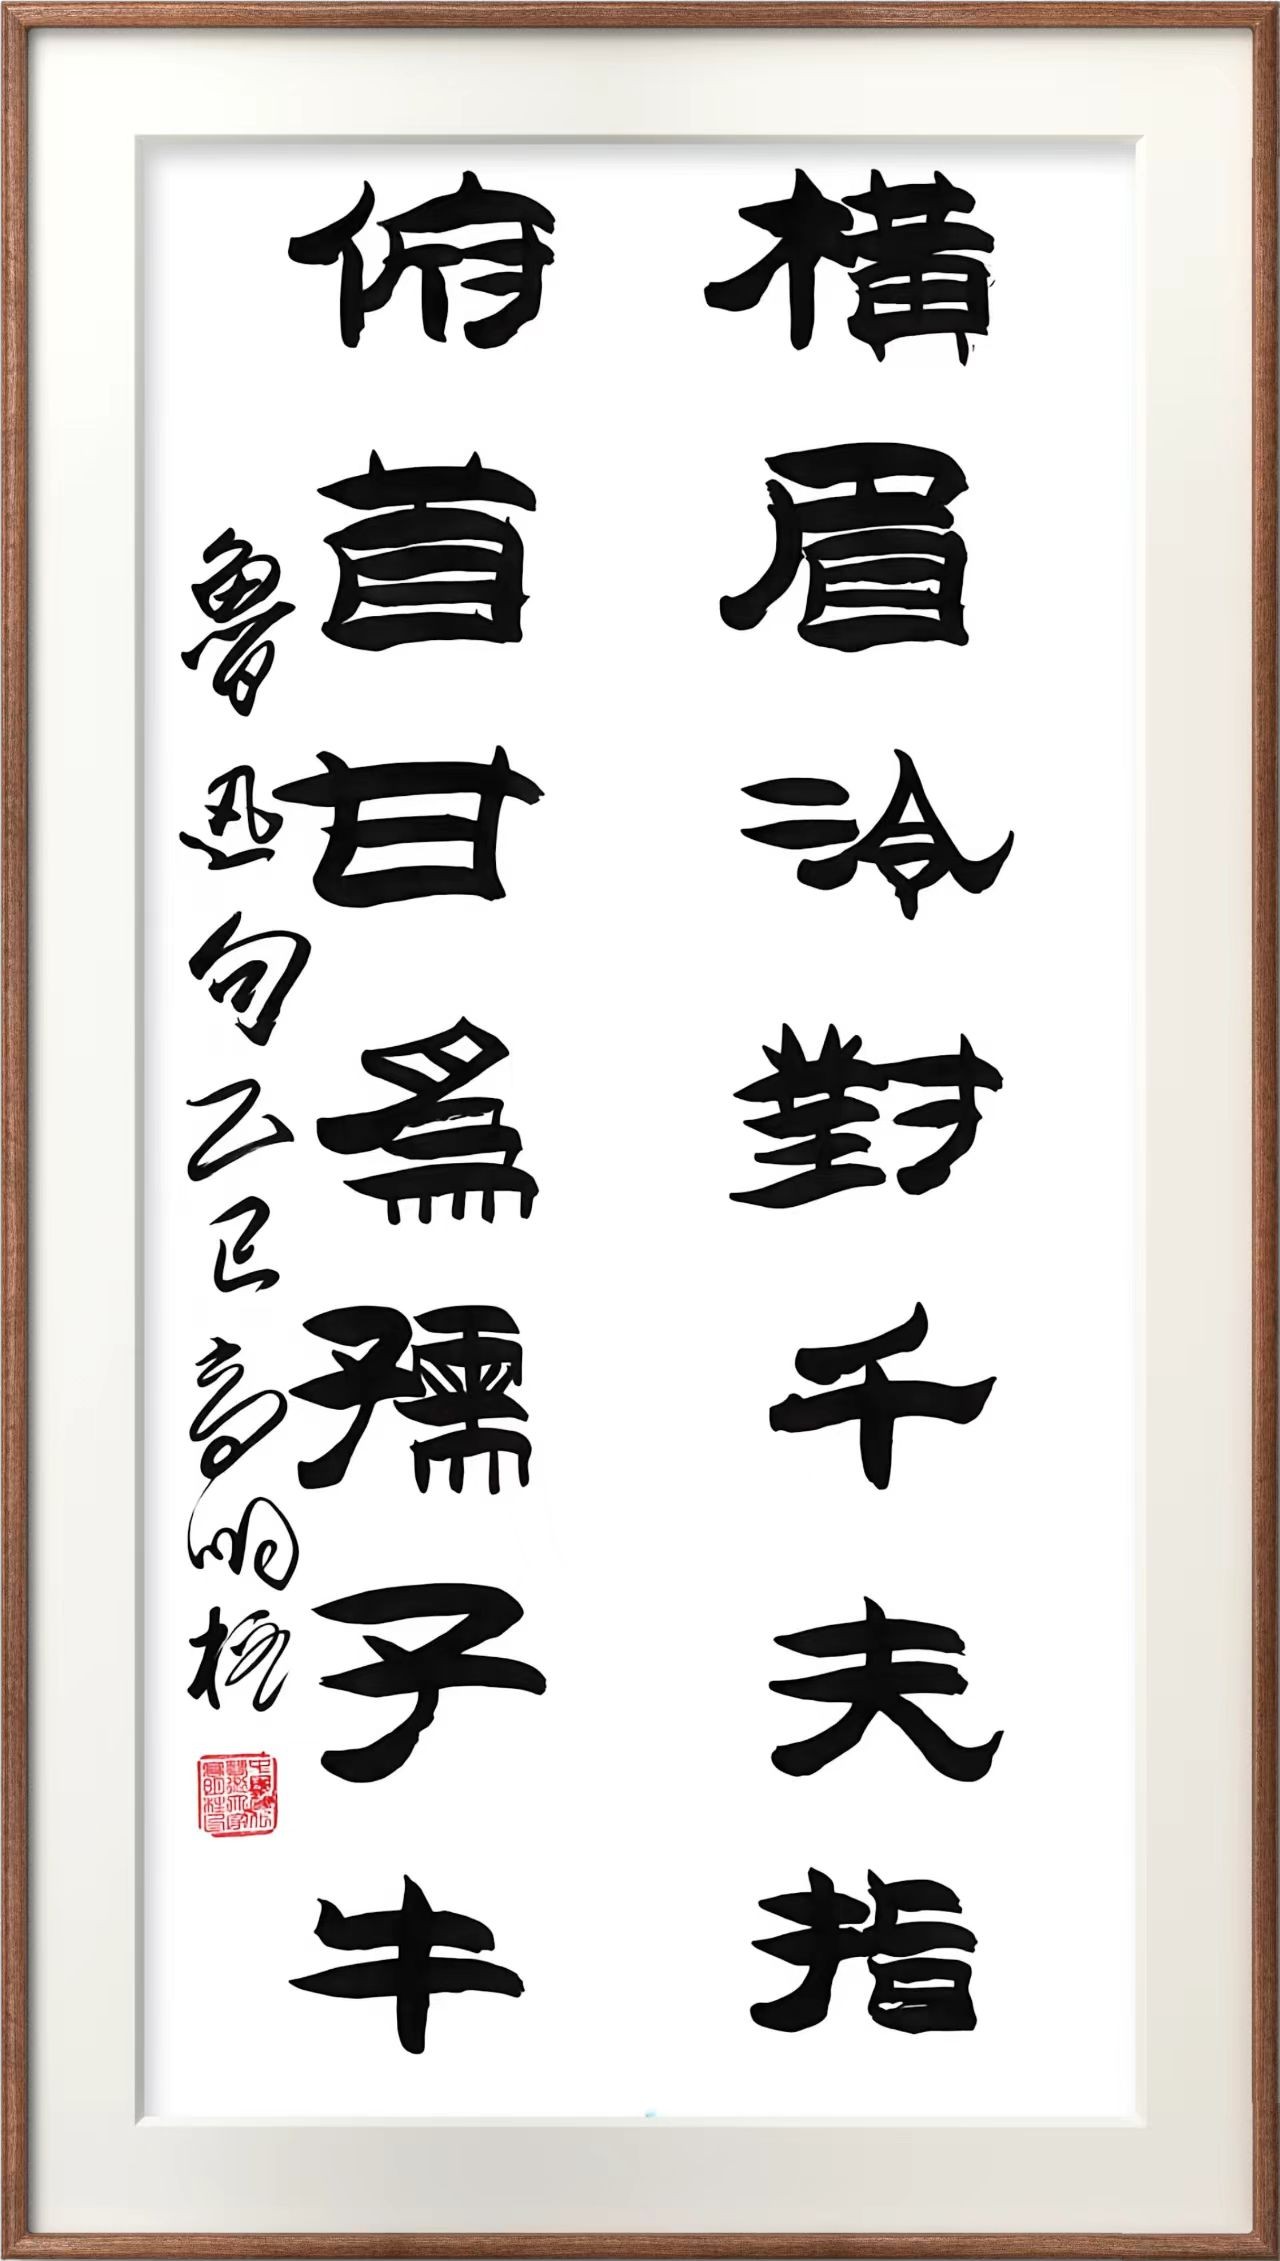 横眉冷對千夫指
俯首甘爲孺子牛
魯迅句乙巳高明